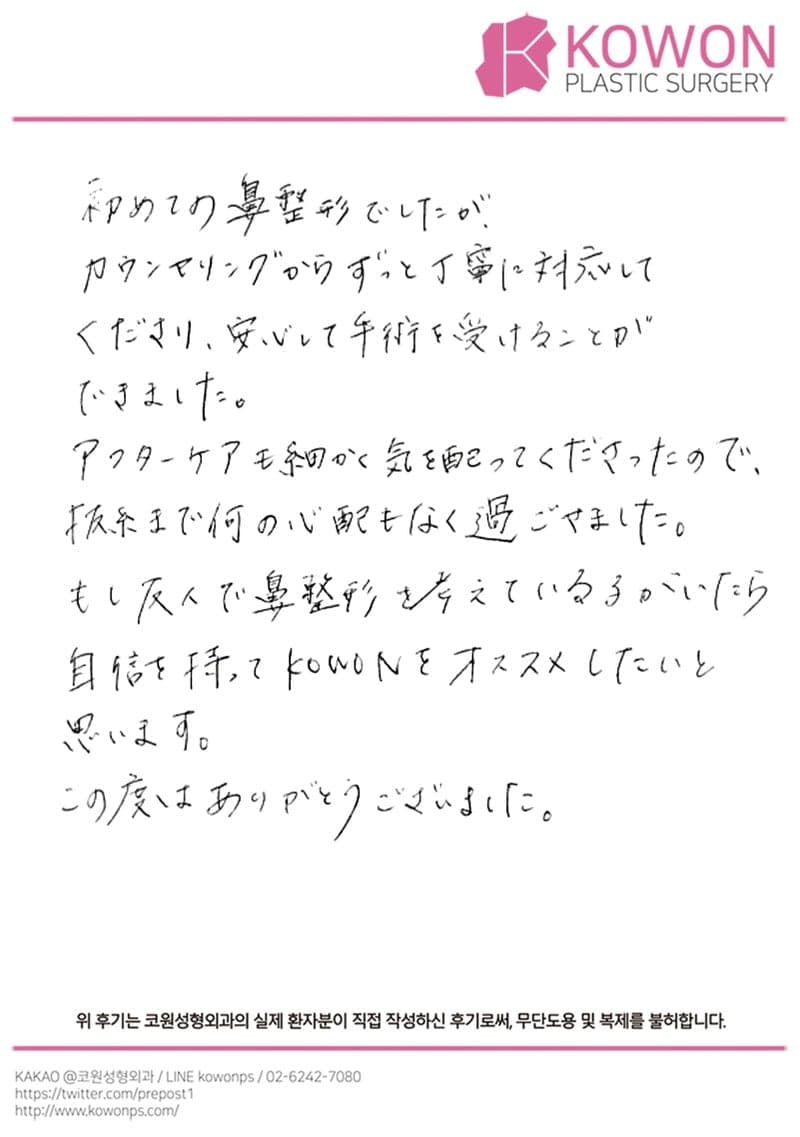 KOWON
PLASTIC SURGERY
初めての鼻整形でしたが、
カウンセリングからずっと丁寧に対応して
くださり、安心して手術を受けることが
できました。
アフターケアも細かく気を配ってくださったので、
抜糸まで何の心配もなく過ごせました。
もし友人で鼻整形を考えている子がいたら
自信を持ってKOWONをオススメしたいと
思います。
この度はありがとうございました。
위 후기는 코원성형외과의 실제 환자분이 직접 작성하신 후기로써, 무단도용 및 복제를 불허합니다.
KAKAO @코원성형외과 / LINE kowonps / 02-6242-7080
https://twitter.com/prepost1
http://www.kowonps.com/